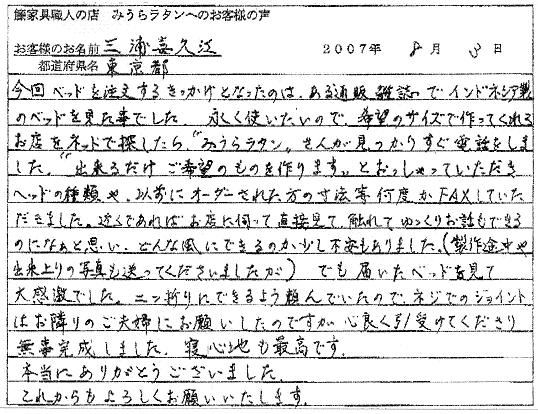 籐家具職人の店 みうらラタンへのお客様の声
お客様のお名前 三浦喜久江 2007年 8月 3日
都道府県名 東京都
今回ベッドを注文するきっかけとなったのは、ある通販雑誌でインドネシア製
のベッドを見た事でした。永く使いたいので、希望のサイズで作ってくれる
お店をネットで探したら"みうらラタン"さんが見つかりすぐ電話をしま
した。"出来るだけご希望のものを作ります。"とおっしゃっていただき
ベッドの種類や、以前にオーダーされた方の寸法等何度かFAXしていた
だきました。近くであればお店に伺って直接見て、触れてゆっくりお話もできる
のになぁと思い、どんな風にできるのか少し不安もありました。(製作途中や
出来上りの写真も送ってくださいましたが) でも届いたベッドを見て
大感激でした。二ツ折りにできるよう頼んでいたので、ネジでのジョイント
はお隣りのご夫婦にお願いしたのですが心良く引受けてくださり
無事完成しました。寝心地も最高です。
本当にありがとうございました。
これからもよろしくお願いいたします。